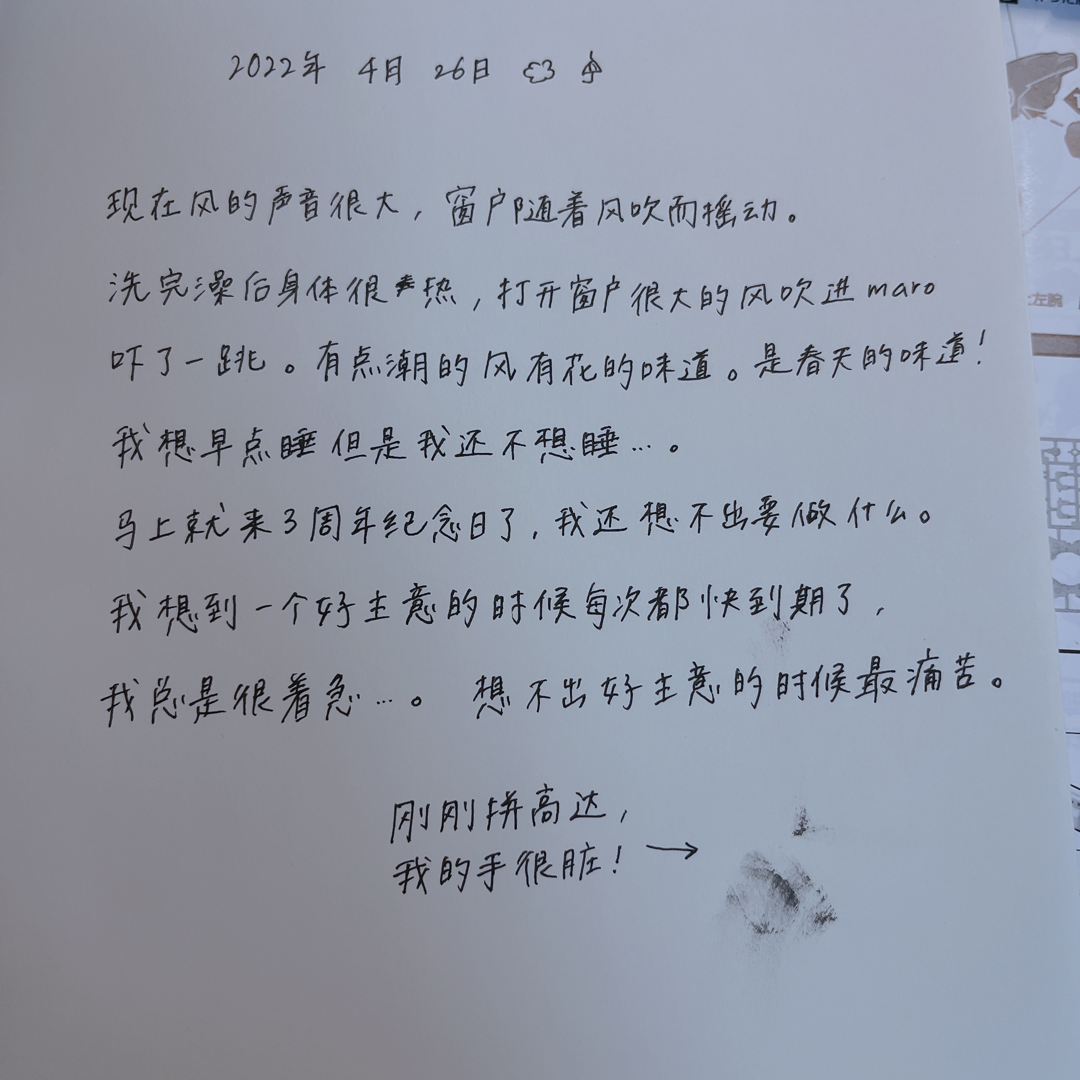 2022年 4月 26日
现在风的声音很大，窗户随着风吹而摇动。
洗完澡后身体很热，打开窗户很大的风吹进maro
吓了一跳。有点潮的风有花的味道。是春天的味道！
我想早点睡但是我还不想睡…。
马上就来3周年纪念日了，我还想不出要做什么。
我想到一个好主意的时候每次都快到期了，
我总是很着急…。 想不出好主意的时候最痛苦。
刚刚拼高达，
我的手很脏！→
左腕